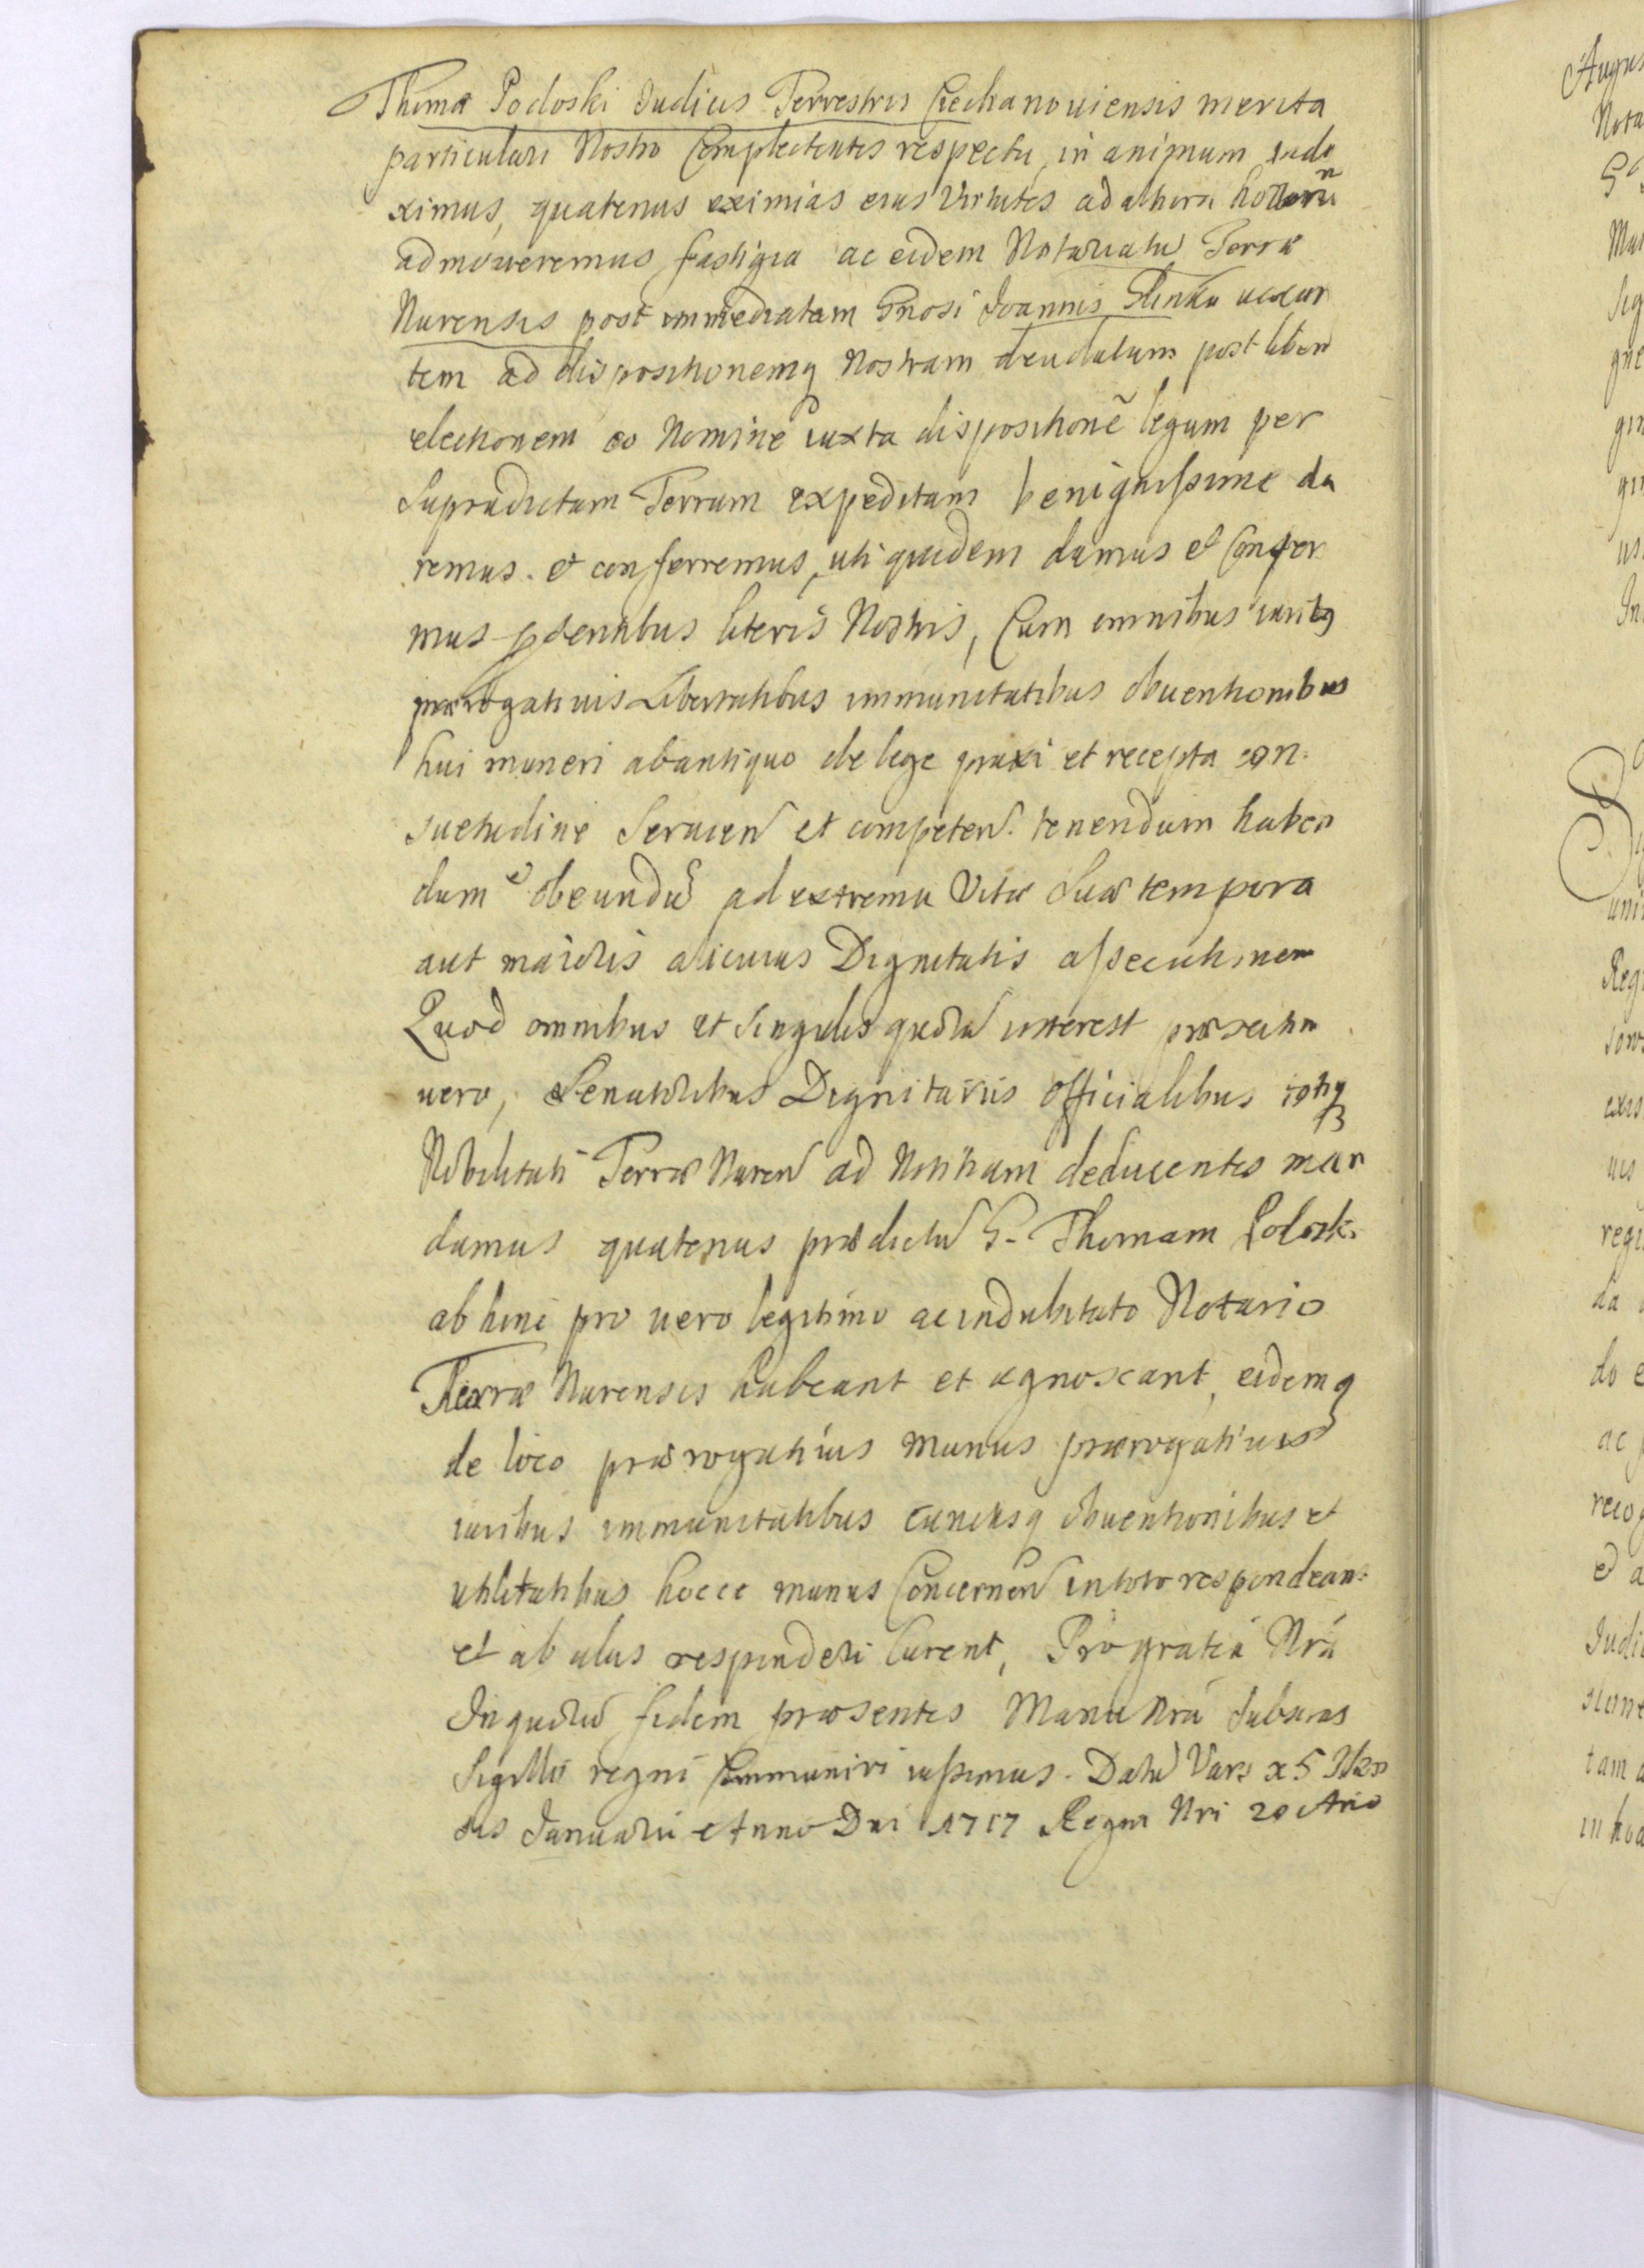 Thomæ Podoski Judicis Terrestris Ciechanoviensis merita
particulari Nostro Complectentes respectu, in animum indu
ximus, quatenus eximias eius Virtutes ad altiora honorũ
admoveremus fastigia ac eidem Notariatũ Terræ
Nurensis post immediatam Gnosi Joannis Glinka vacan
tem ad dispositionemq Nostram devolutum post liberã
electionem eo Nomine iuxta dispositionẽ legum per
Supradictam Terram expeditam benignissime da
remus. et conferremus, uti quidem damus et Confer
mus pñtibus literis Nostris, Cum omnibus iuribq
prærogativis Libertatibus immunitatibus obventionibus
hui muneri abantiquo de lege praxi et recepta con.
suetudine Servien et competen. tenendum haben
dum et obeundũ ad extrema Vitæ Suæ tempora
aut maioris alicuius Dignitatis assecutionem
Quod omnibus et Singulis quorũ interest præsertim
vero, Senatoribus Dignitariis Officialibus totiq
Nobilitati Terræ Nuren ad Notitiam deducentes man
damus quatenus prædictũ G. Thomam Podoski
ab hinc pro vero legitimo ac indubitato Notario
Terræ Nurensis habeant et agnoscant, eidemq
de loco prærogativis Munus prærogativis
iuribus immunitatibus cunctisq obventionibus et
utilitatibus hocce munus Concernen in toto respondeant
et ab aliis responderi Curent, Pro gratia Nrã
In quorũ fidem præsentes Manu Nrã Subscras
Sigillo regni Communiri iussimus. Datũ Vars x5
Januarii Anno Dni 1717 Regni Nri 20 Ano